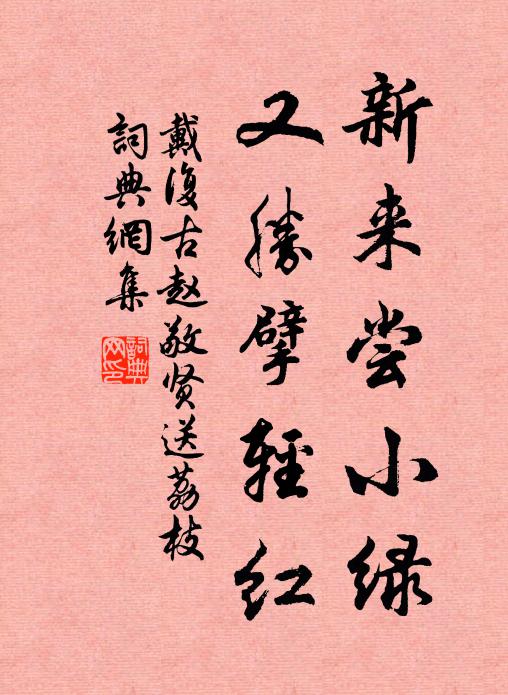 新来尝小绿
又勝擘輕红
戴復古赵敬贤送荔枝
詞典網集
詞典網印